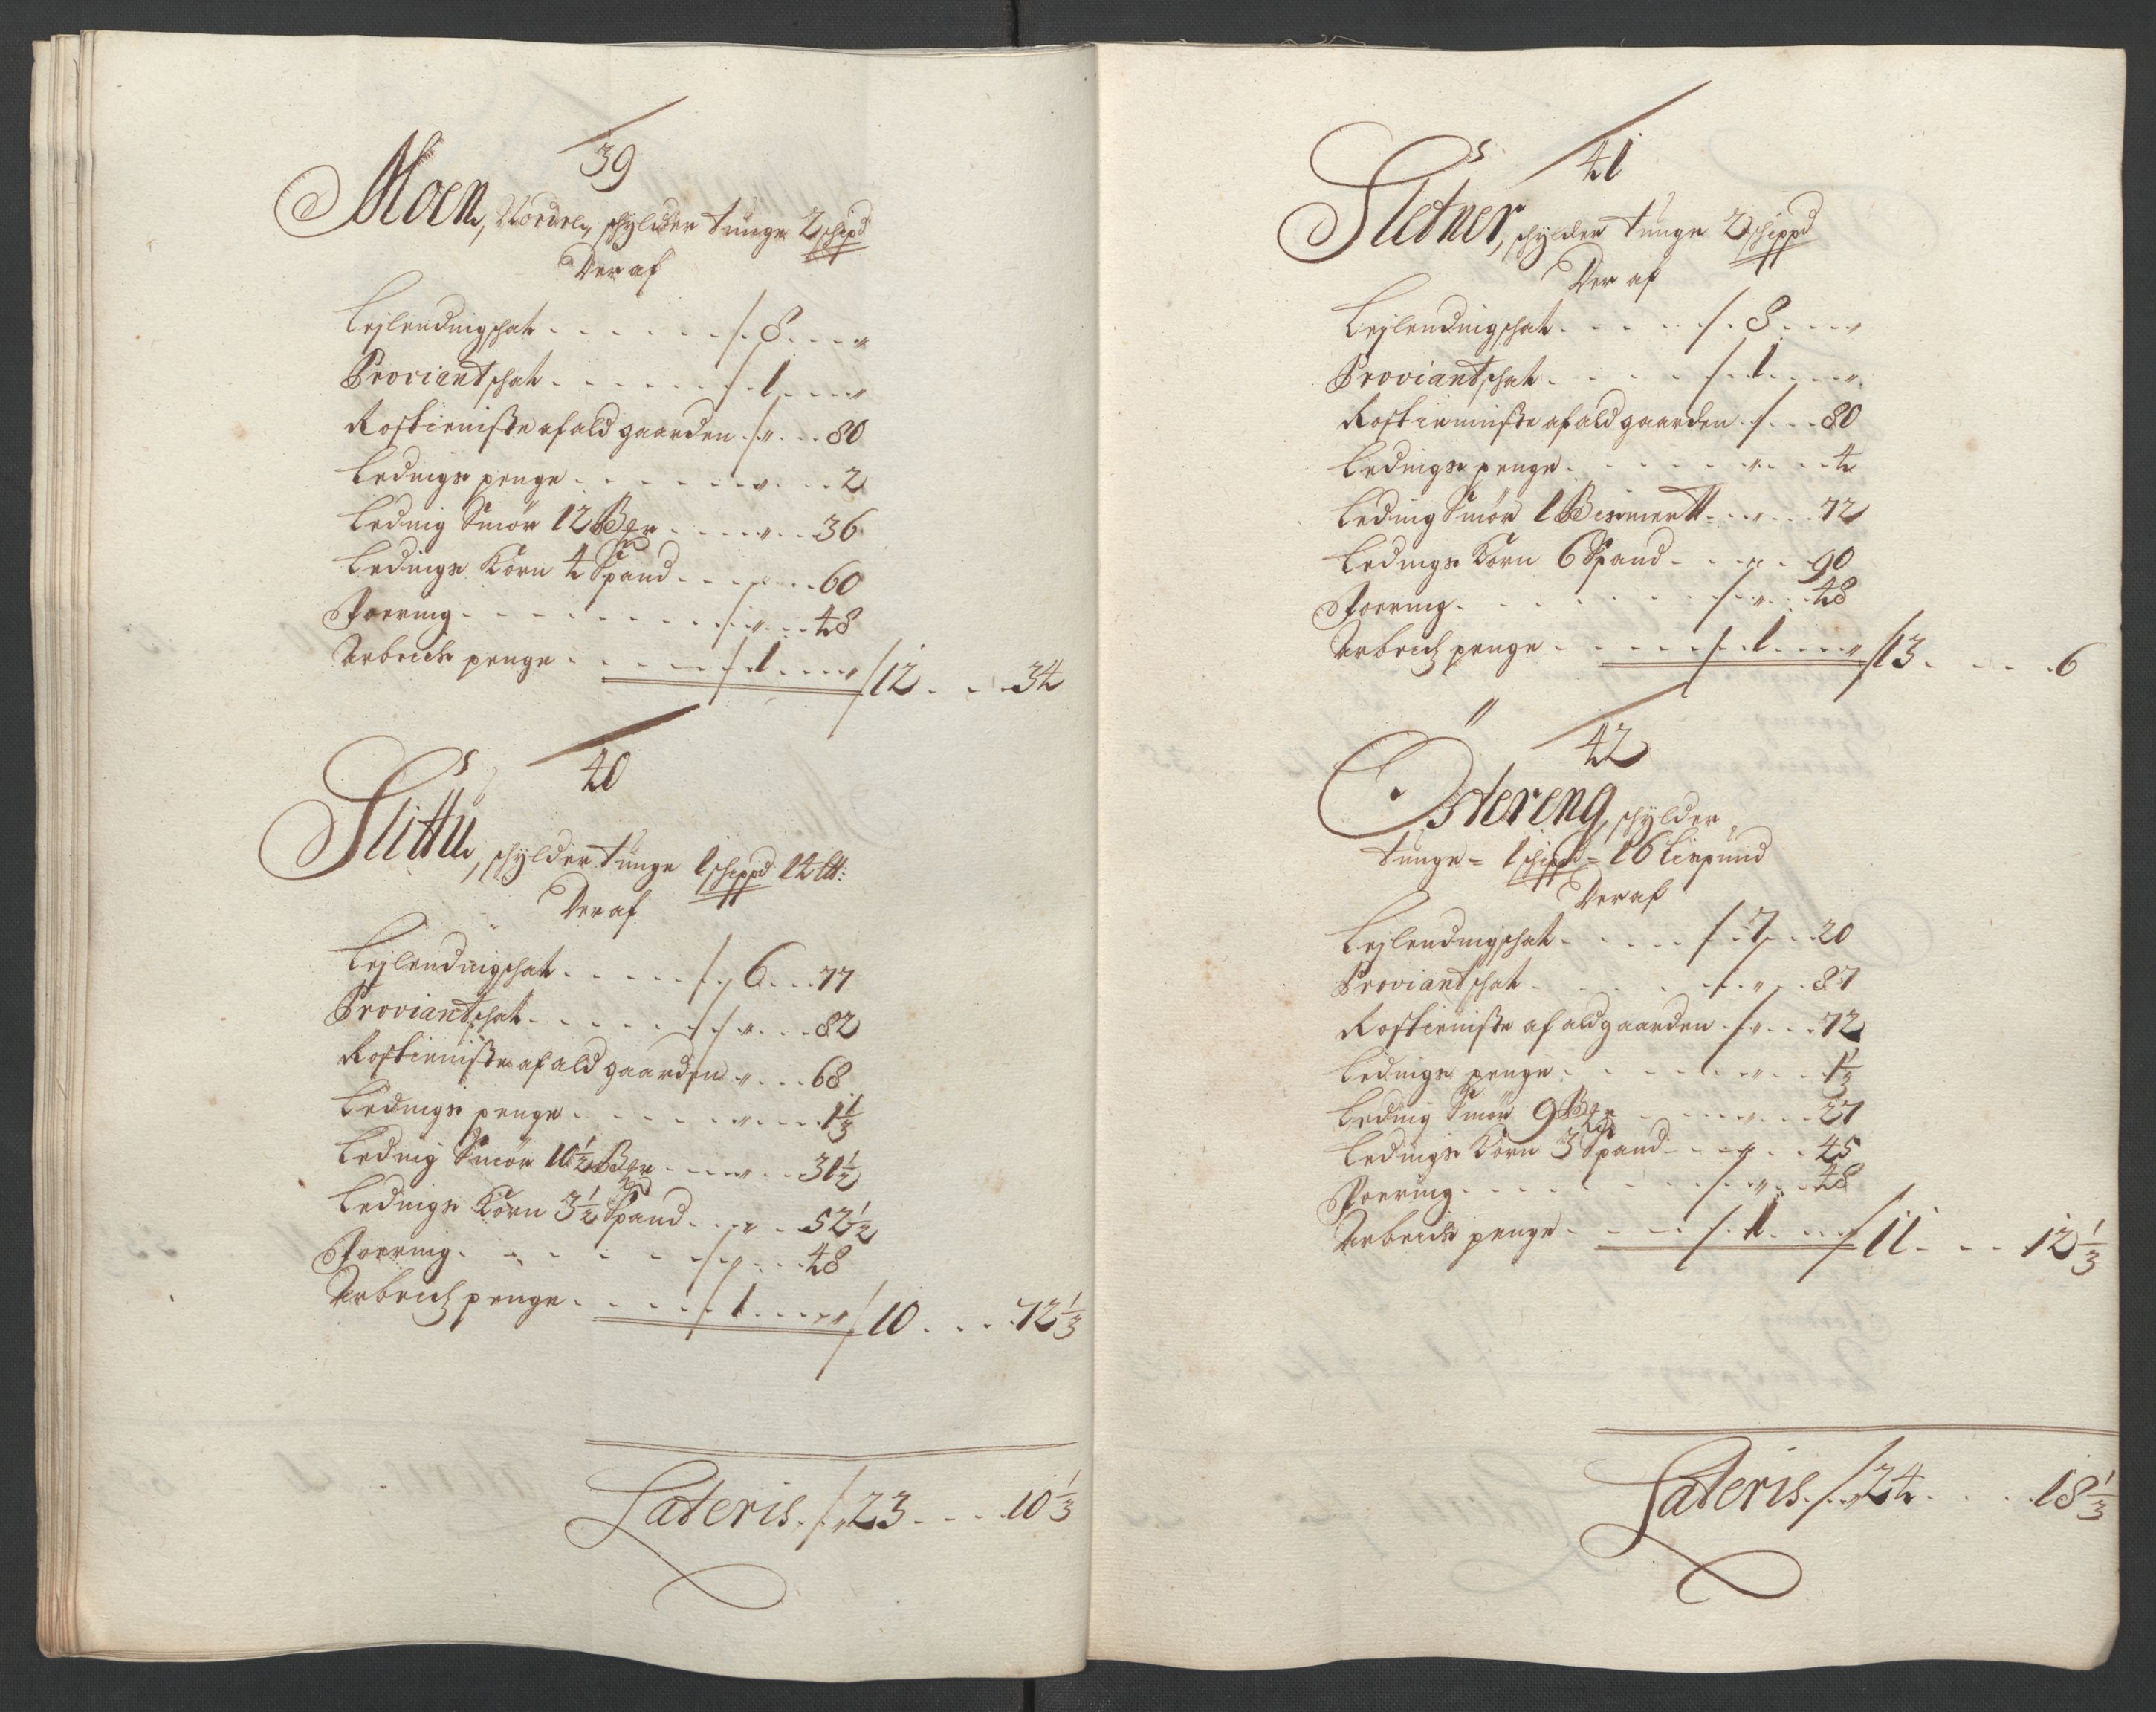 39
Moen, Nordre, schylder tunge 2 schipd
Der af
Lejlendingschat - - - - - - /. 8 - - - "
Proviantschat - - - - - - /. 1 - - - "
Rostieniste af ald gaarden ./. " - - 80
Ledings penge - - - - - - " - - - 2
Leding Smör 12 Bgr - - - - " - - 36
Ledings Korn 4 Spand - - - " - - 60
Foering - - - - - - - - /. " - - 48
Arbeids penge - - - - - /. 1 - - - " /12 - - - 34
40
Slittu, schylder tunge 1 schippd 14 lt:
Der af
Lejlendingschat - - - - - /. 6 - - - 77
Proviantschat - - - - - - /. " - - - 82
Rostieniste af ald gaarden " - - - 68
Ledings penge - - - - - - " - - - 1 1/3
Leding Smör 10 1/2 Bgr - - - - " - - 31 1/2
Ledings Korn 3 1/2 Spand - - - " - - 52 1/2
Foering - - - - - - - /. " - - - 48
Arbeids penge - - - - - /. 1 - - - " /10 - - - 72 1/3
Lateris ./. 23 - - - 10 1/3
41
Sletner, schylder tunge 2 schippd
Der af
Lejlendingschat - - - - - /. 8 - - - "
Proviantschat - - - - - /. 1 - - - "
Rostienniste af ald gaarden ./. - - 80
Ledings penge - - - - - - " - - - 4
Leding Smör 1 Bismertt - - " - - 72
Ledings Korn 6 Spand - - " - - 90
Foering - - - - - - - /. " - - 48
Arbeids penge - - - - - /. 1 - - - " /13 - - - 6
42
Östereng, schylder
tunge = 1 schipd = 16 Lispund
Der af
Lejlendingschat - - - - - /. 7 - - 20
Proviantschat - - - - - /. " - - 87
Rostieniste af ald gaarden ./. " - - 72
Ledings penge - - - - - - " - - 1 1/3
Leding Smör 9 Bgr - - - - " - - 27
Ledings Korn 3 Spand - - " - - 45
Foering - - - - - - - /. " - - 48
Arbeids penge - - - - /. 1 - - - /11 - - - 12 1/3
Lateris ./. 24 - - - 18 1/3